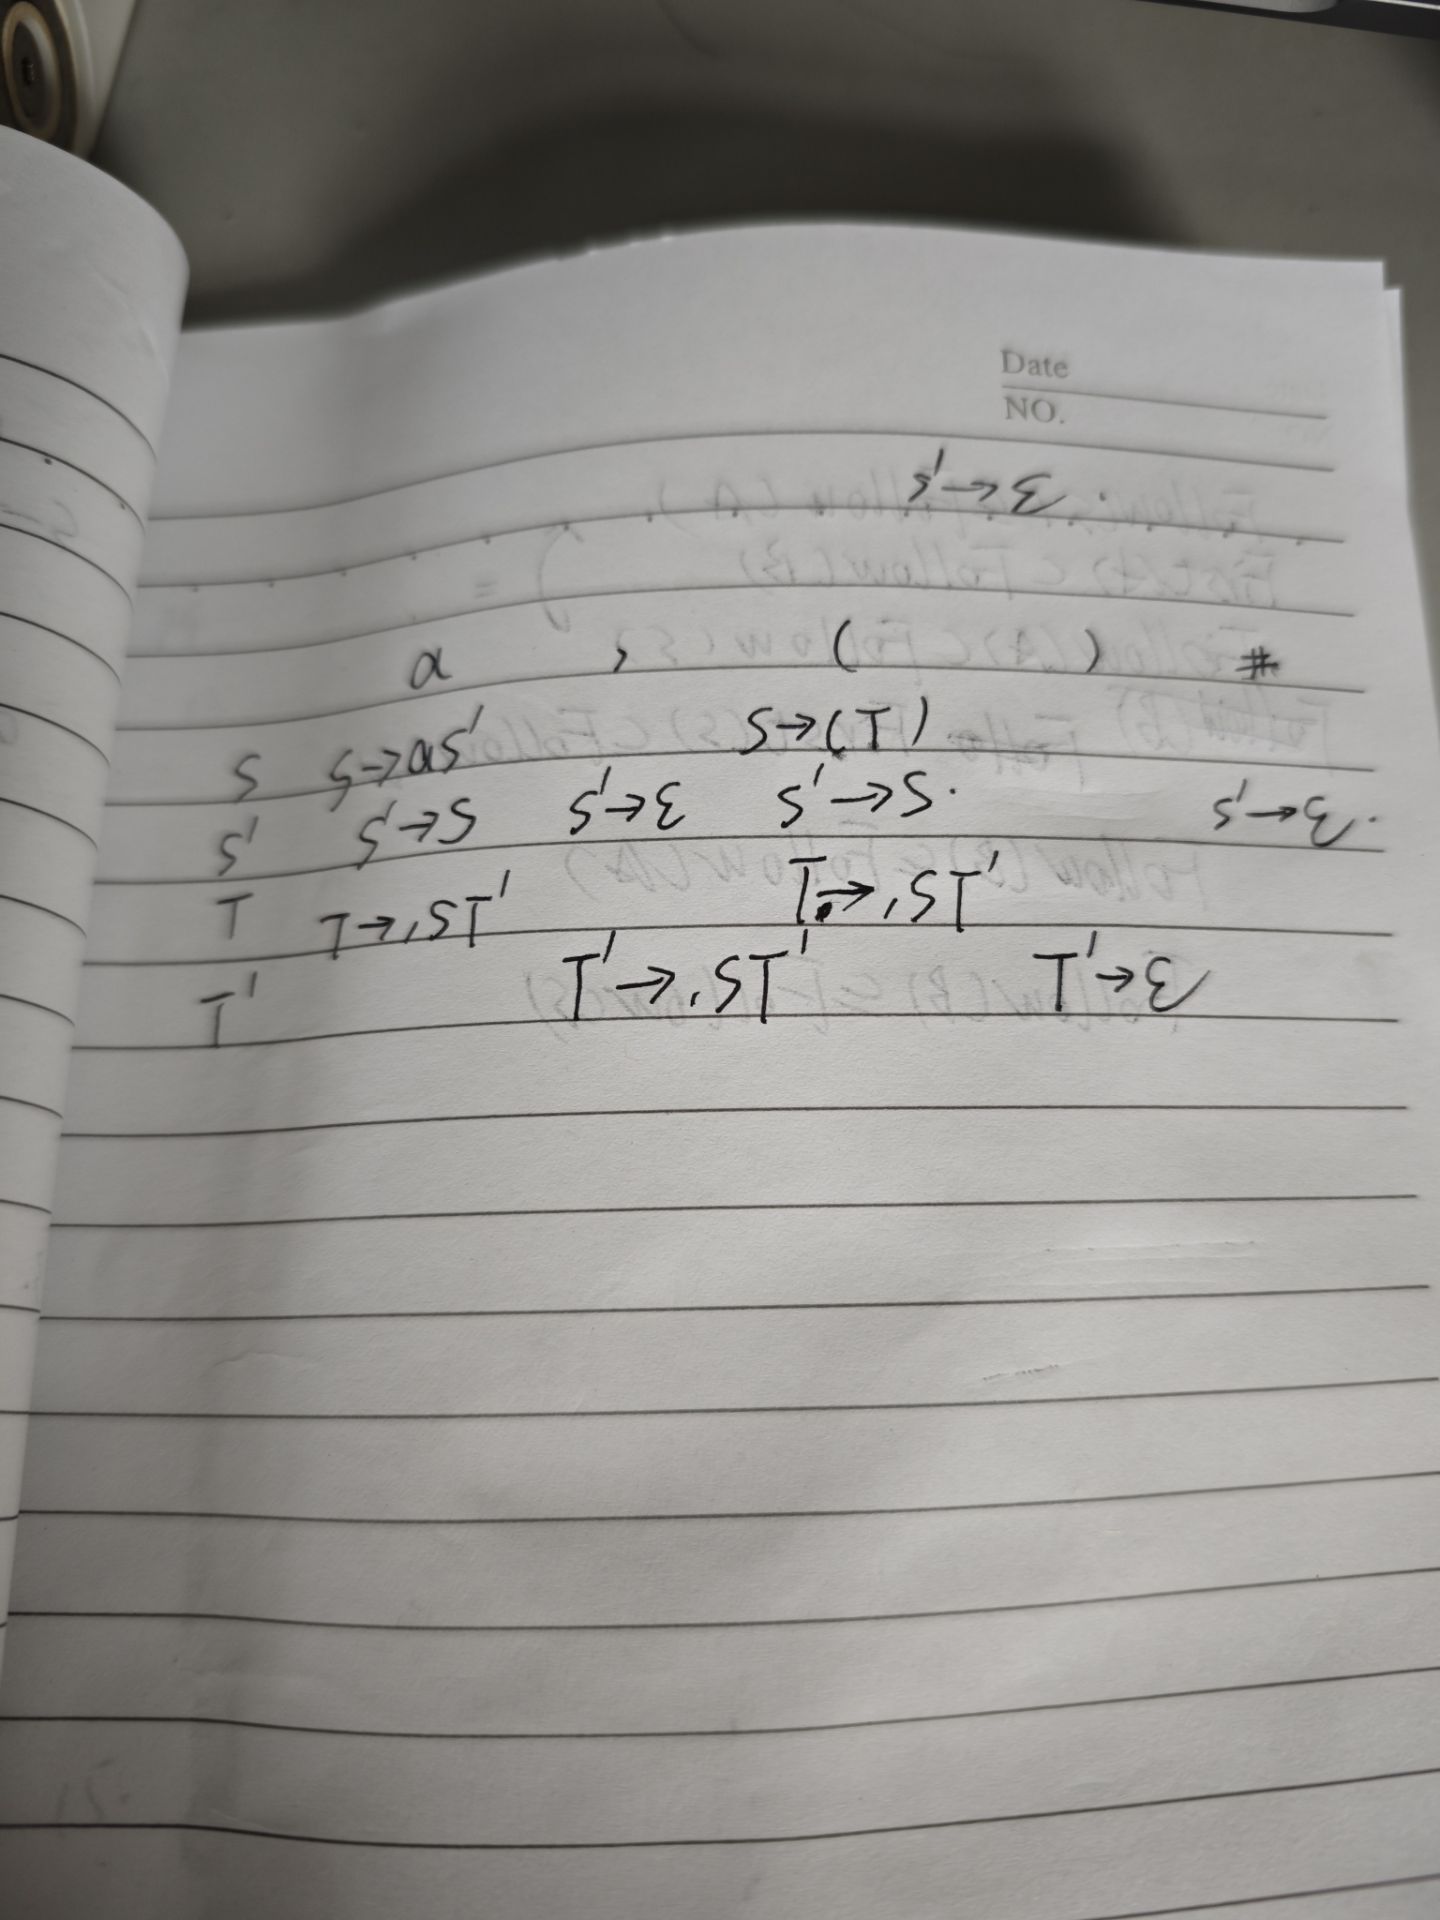 Date
NO.
S'→ε.
a , ( ) #
S S→aS' S→(T)
S' S'→S S'→ε S'→S. S'→ε.
T T→,ST' T→,ST'
T' T'→,ST' T'→ε